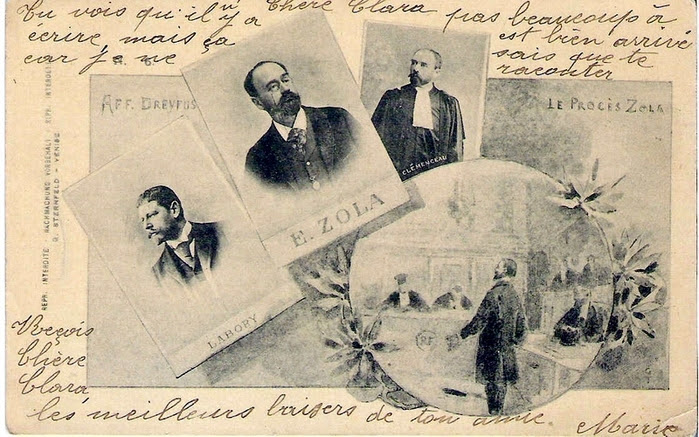 Chère Clara
Tu vois qu'il n'y a pas beaucoup à
écrire mais ça est bien arrivé
car je ne sais que te
raconter
AFF. DREYFUS
LE PROCÈS ZOLA
CLÉMENCEAU
E. ZOLA
LABORY
RF
REPR. INTERDITE - NACHMACHUNG VORBEHALT. REPR. INTERDITE
G. STERNFELD - VENISE
Reçois
Chère
Clara
les meilleurs baisers de ton amie.
Marie